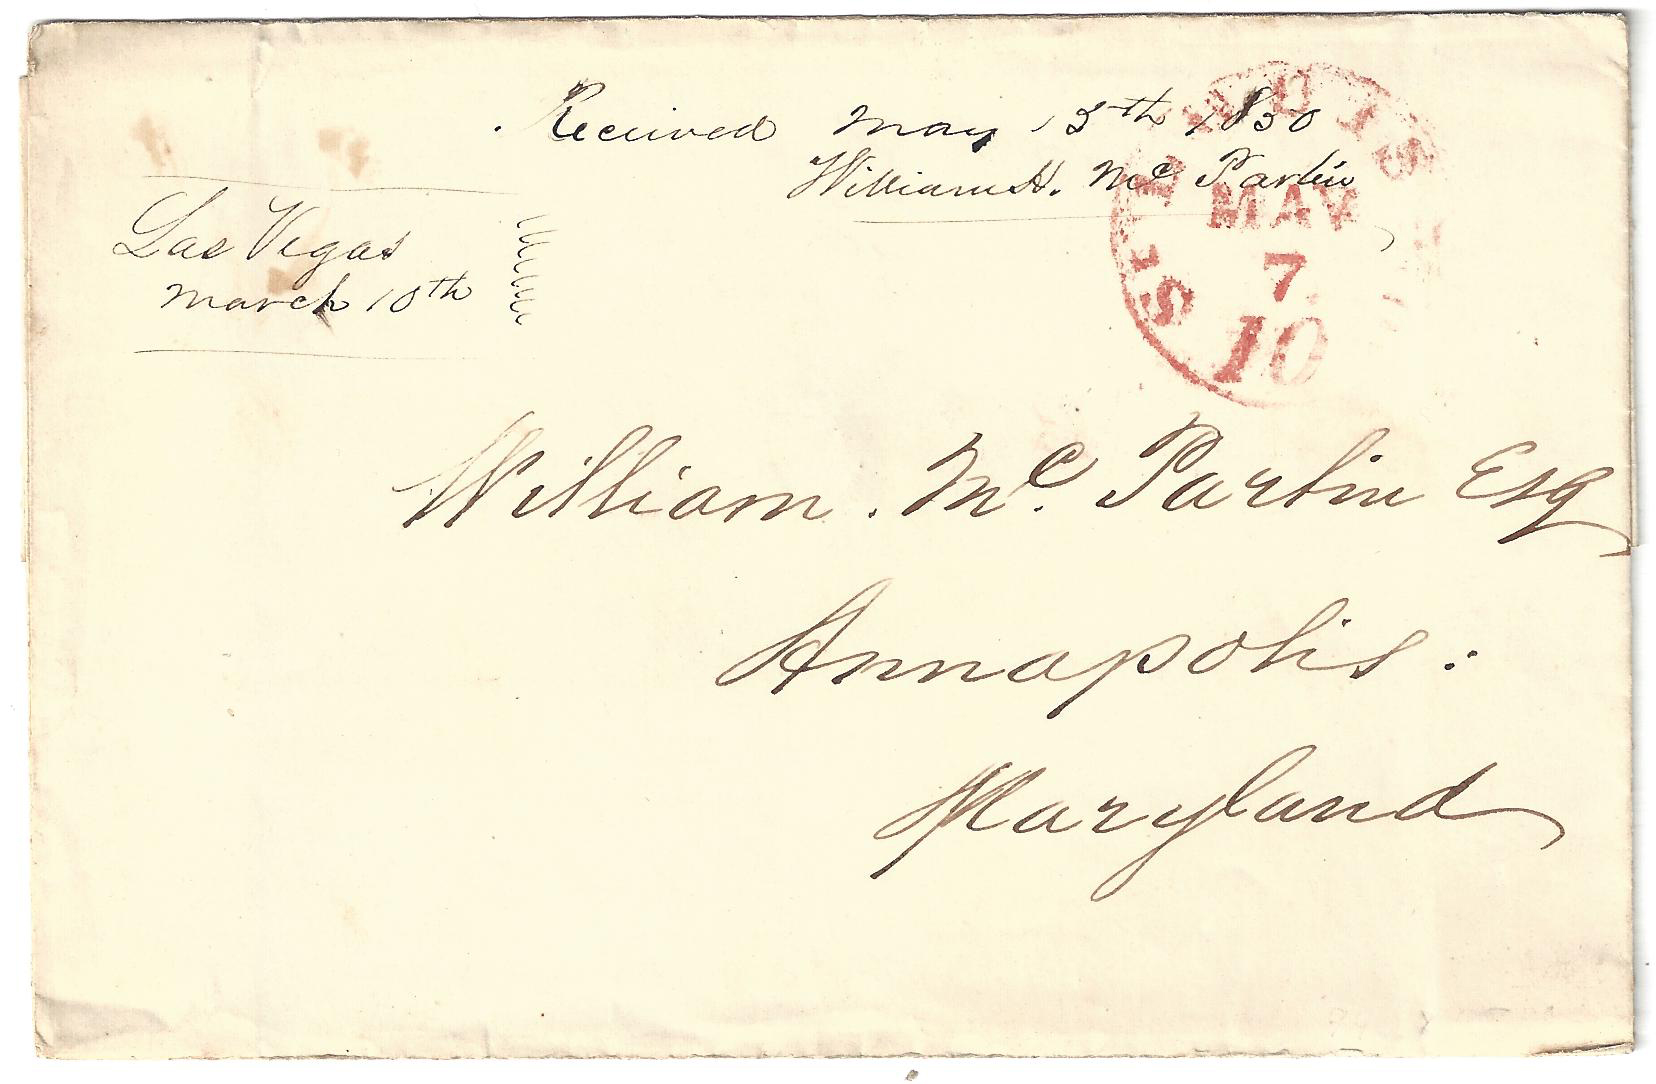 Received May 15th 1850
William H. Mc Parlin
Las Vegas
March 10th
ST. LOUIS
MAY
7
10
William. Mc. Parlin Esq
Annapolis:
Maryland